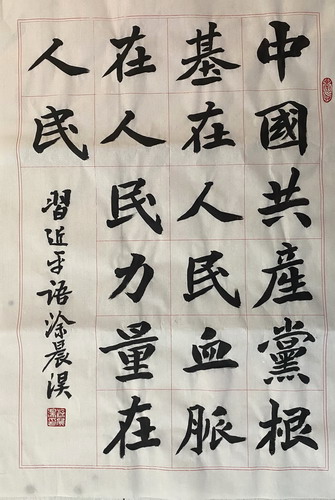 中國共產黨根
基在人民血脈
在人民力量在
人民
習近平語涂晨淏